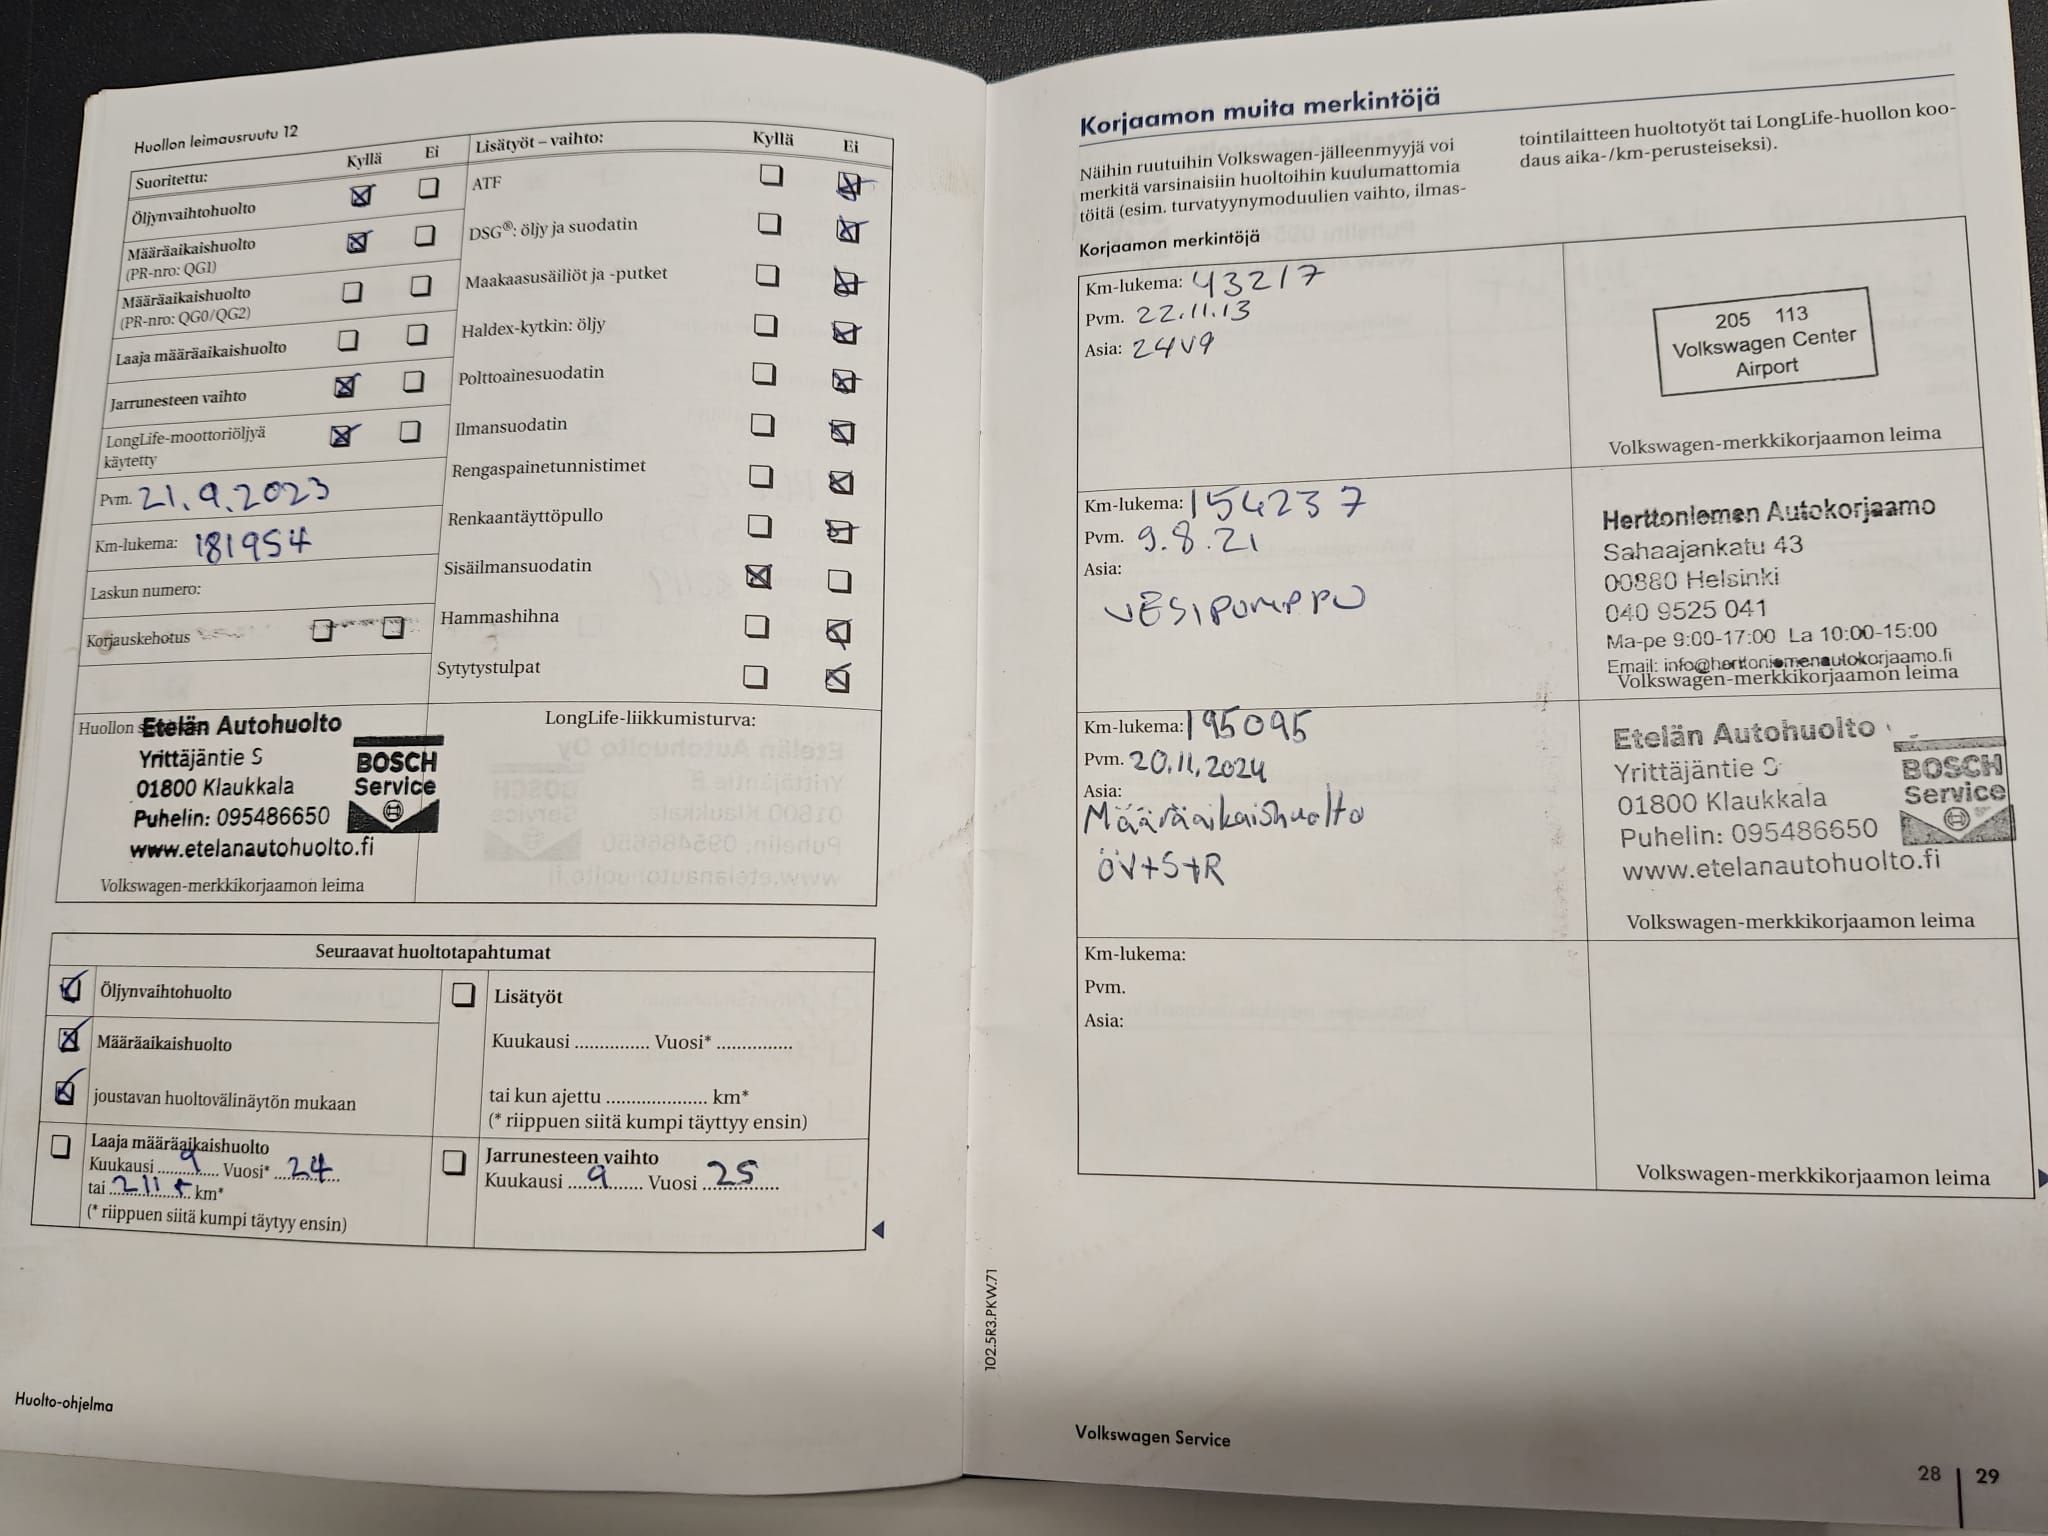 Huollon leimausruutu 12
Suoritettu: Kyllä Ei
Öljynvaihtohuolto
Määräaikaishuolto
(PR-nro: QG1)
Määräaikaishuolto
(PR-nro: QG0/QG2)
Laaja määräaikaishuolto
Jarrunesteen vaihto
LongLife-moottoriöljyä
käytetty
Pvm. 21.9.2023
Km-lukema: 181954
Laskun numero:
Korjauskehotus
Lisätyöt – vaihto: Kyllä Ei
ATF
DSG®: öljy ja suodatin
Maakaasusäiliöt ja -putket
Haldex-kytkin: öljy
Polttoainesuodatin
Ilmansuodatin
Rengaspainetunnistimet
Renkaantäyttöpullo
Sisäilmansuodatin
Hammashihna
Sytytystulpat
Huollon
Etelän Autohuolto
Yrittäjäntie 5
01800 Klaukkala
Puhelin: 095486650
www.etelanautohuolto.fi
BOSCH
Service
Volkswagen-merkkikorjaamon leima
LongLife-liikkumisturva:
Seuraavat huoltotapahtumat
Öljynvaihtohuolto
Määräaikaishuolto
joustavan huoltovälinäytön mukaan
Laaja määräaikaishuolto
Kuukausi ...9... Vuosi* ...24...
tai ...211 t... km*
(* riippuen siitä kumpi täytyy ensin)
Lisätyöt
Kuukausi ............... Vuosi* ...............
tai kun ajettu .................... km*
(* riippuen siitä kumpi täyttyy ensin)
Jarrunesteen vaihto
Kuukausi ...9... Vuosi ...25...
Huolto-ohjelma
Korjaamon muita merkintöjä
Näihin ruutuihin Volkswagen-jälleenmyyjä voi
merkitä varsinaisiin huoltoihin kuulumattomia
töitä (esim. turvatyynymoduulien vaihto, ilmas-
tointilaitteen huoltotyöt tai LongLife-huollon koo-
daus aika-/km-perusteiseksi).
Korjaamon merkintöjä
Km-lukema: 43217
Pvm. 22.11.13
Asia: 24V9
205 113
Volkswagen Center
Airport
Volkswagen-merkkikorjaamon leima
Km-lukema: 154237
Pvm. 9.8.21
Asia:
VESIPUMPPU
Herttoniemen Autokorjaamo
Sahaajankatu 43
00880 Helsinki
040 9525 041
Ma-pe 9:00-17:00 La 10:00-15:00
Email: info@herttoniemenautokorjaamo.fi
Volkswagen-merkkikorjaamon leima
Km-lukema: 195095
Pvm. 20.11.2024
Asia:
Määräaikaishuolto
ÖV+S+R
Etelän Autohuolto
Yrittäjäntie 5
01800 Klaukkala
Puhelin: 095486650
www.etelanautohuolto.fi
BOSCH
Service
Volkswagen-merkkikorjaamon leima
Km-lukema:
Pvm.
Asia:
Volkswagen-merkkikorjaamon leima
102.5R3.PKW.71
Volkswagen Service
28 29